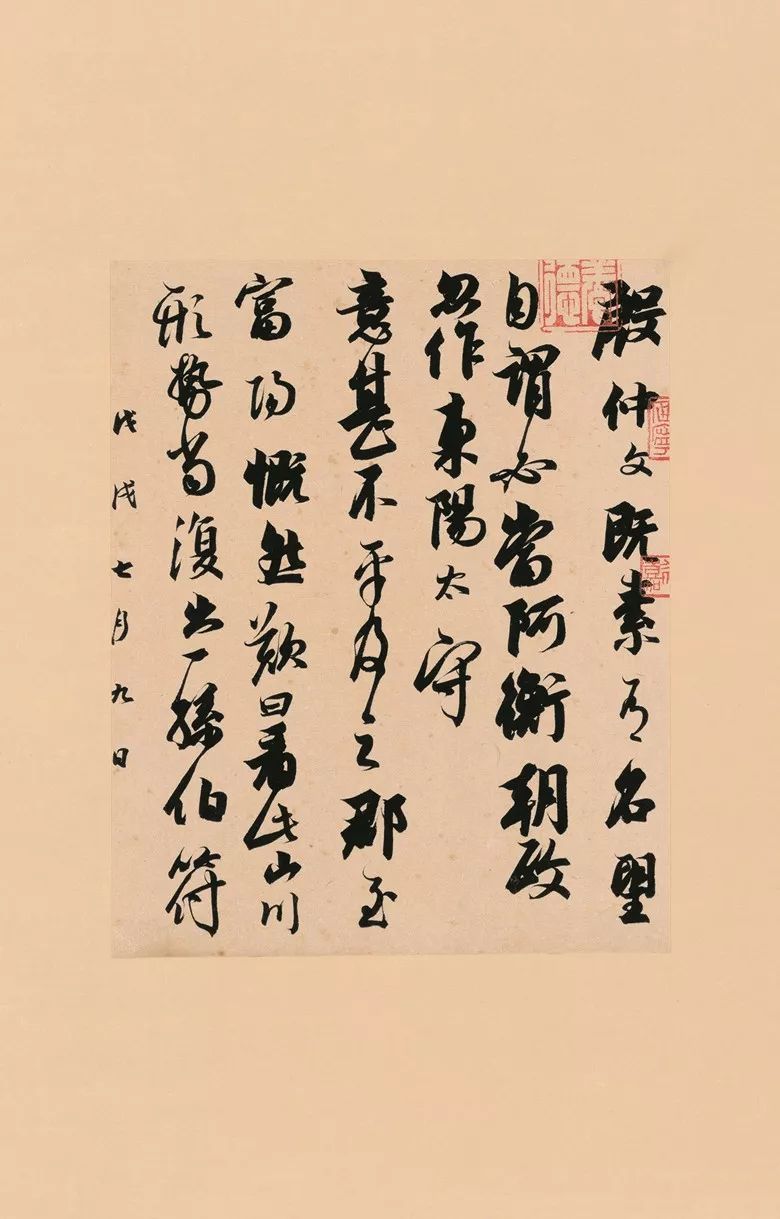 殷仲文既素有名望
自謂必當阿衡朝政
忽作東陽太守
意甚不平及之郡至
富陽慨然歎曰看此山川
形勢當復出一孫伯符
戊戌七月九日